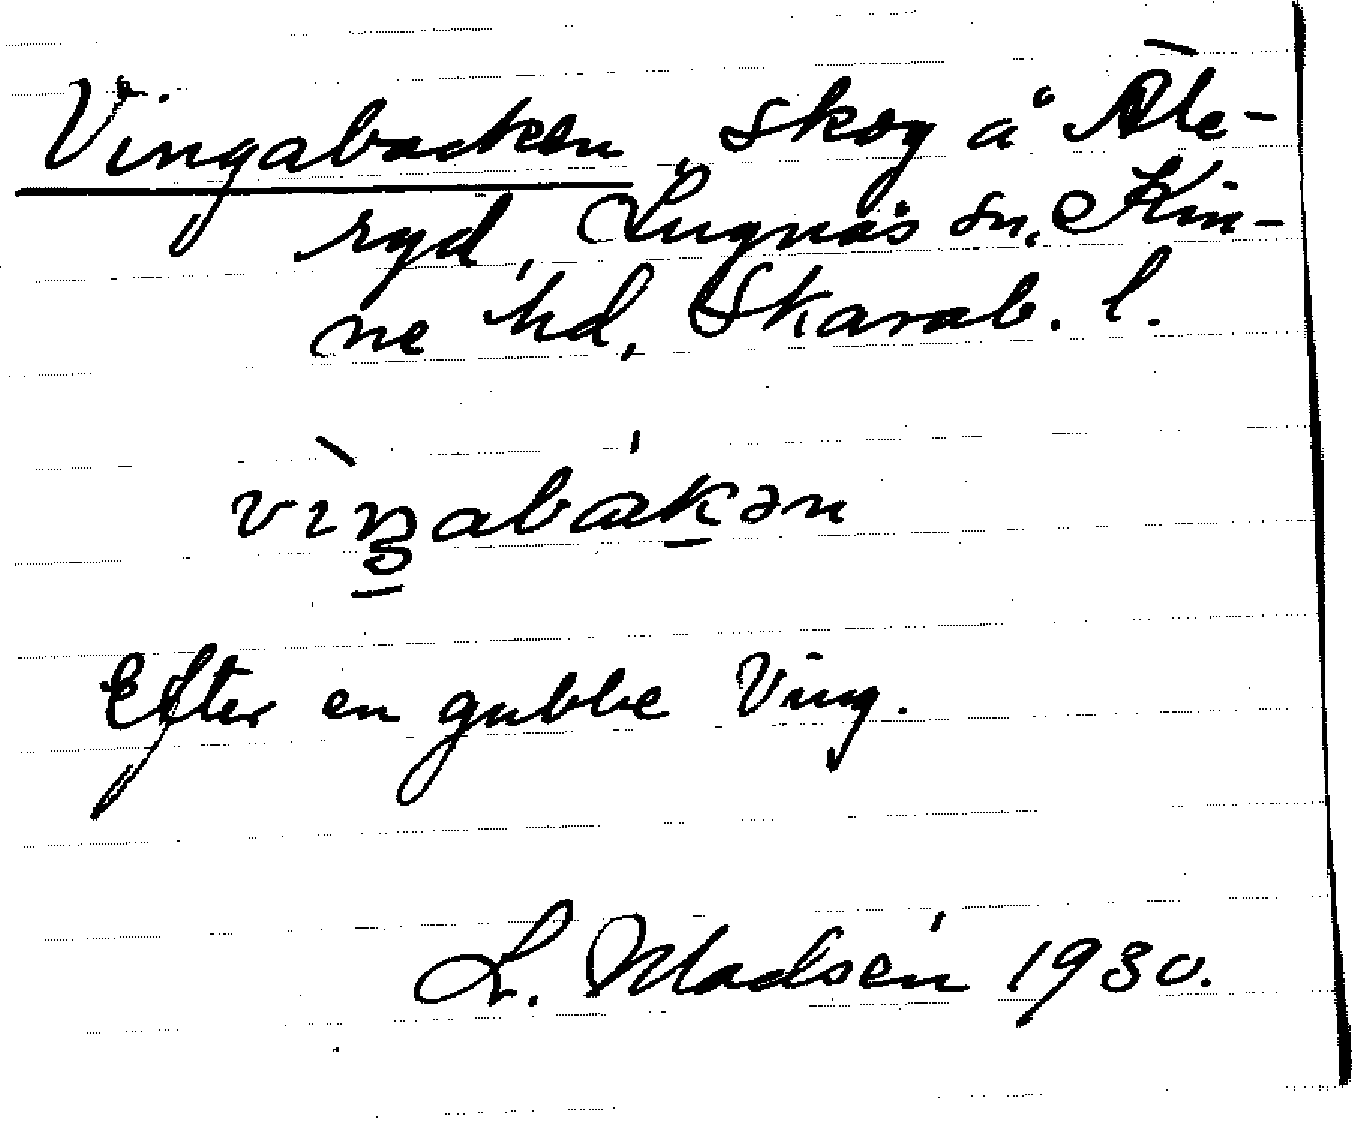 Vingabacken, skog å Åle-
ryd, Lugnås sn, Kin-
ne hd, Skarab. l.
Efter en gubbe Ving.
L. Madsén 1930.